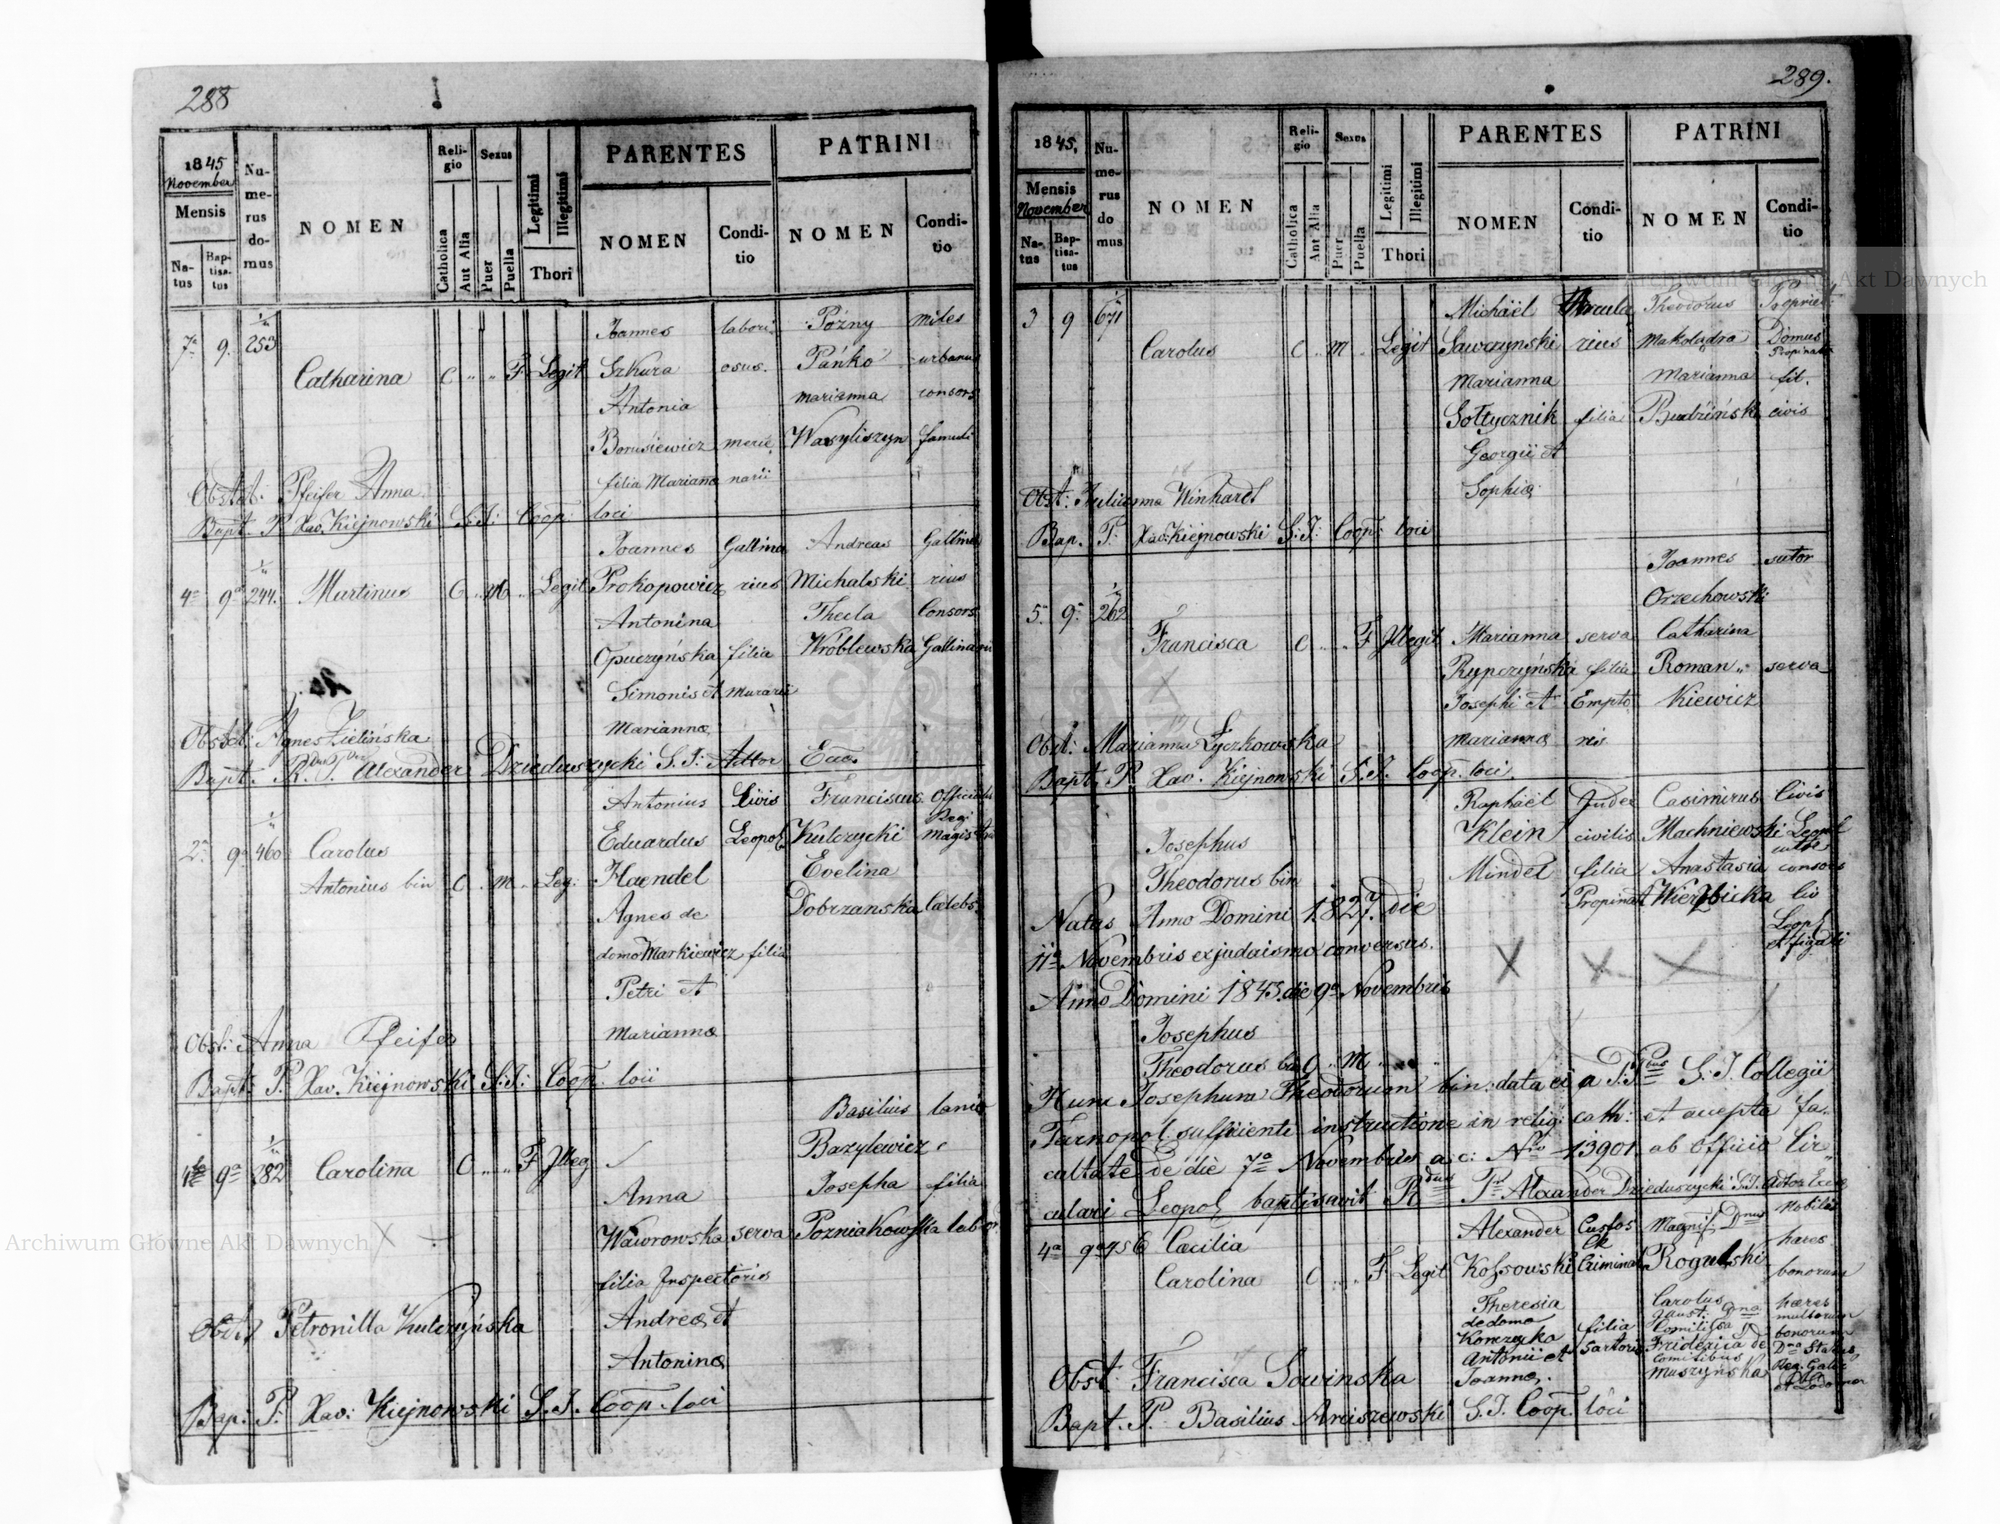 288
1845
November
Mensis
Natus
Baptisatus
Numerus domus
NOMEN
Religio
Catholica
Aut Alia
Sexus
Puer
Puella
Legitimi
Illegitimi
Thori
PARENTES
NOMEN
Conditio
PATRINI
NOMEN
Conditio
7a 9. 253
Catharina C " " F Legit
Joannes labori
Szkura osus.
Antonia
Borusiewicz
filia Marianæ
Pożny miles
Pańko urbanus
Marianna consors
Wasyliszyn famuli
Obstet: Pfeifer Anna
Bapt. P. Xav. Kiejnowski S.J: Coop. loci
4a 9a 244.
Martinus C " M " Legit
Joannes Gallina
Prokopowicz rius
Antonina
Opuczyńska filia
Simonis et murarii
Mariannæ
Andreas Gallina
Michalski rius
Thecla Consors
Wróblewska Gallinarii
Obstet: Agnes Zielińska
Bapt. R. P. Alexander Dzieduszycki S.J: Adtor Ecc.
2a 9a 460
Carolus
Antonius bin C " M " Leg:
Antonius Civis
Eduardus Leopol
Haendel
Agnes de
domo Markiewicz filia
Petri et
Mariannæ
Franciscus Officialis
Kulczycki Magist
Evelina
Dobrzanska Cælebs
Obst: Anna Pfeifer
Bapt: P. Xav. Kiejnowski S.J: Coop. loci
9a 282
Carolina C " " F Illeg
Anna
Wawrowska serva
filia Inspectoris
Andreæ et
Antoninæ
Basilius lanio
Bazylewicz
Josepha filia
Pozniakowska labor
Obst. Petronilla Kulczyńska
Bap: P. Xav: Kiejnowski S.J. Coop. loci
289.
1845.
Mensis
November
Natus
Baptisatus
Numerus domus
NOMEN
Religio
Catholica
Aut Alia
Sexus
Puer
Puella
Legitimi
Illegitimi
Thori
PARENTES
NOMEN
Conditio
PATRINI
NOMEN
Conditio
3 9 671
Carolus C " M " Legit
Michaël
Sawczynski rius
Marianna
Sołtycznik filia
Georgii et
Sophiæ
Theodorus Propriet
Makolądra Domus
Marianna fil.
Budzińska civis
Obst: Julianna Winhard
Bap. P. Xav: Kiejnowski S.J: Coop: loci
5. 9a 262
Francisca C " " F Illegit
Marianna serva
Rypczyńska filia
Josephi et Empto
Mariannæ ris
Joannes sutor
Orzechowski
Catharina
Roman serva
kiewicz
Obst: Marianna Łyczkowska
Bapt. P. Xav. Kiejnowski S.J. Coop. loci.
Josephus
Theodorus bin
Raphaël Judex
Klein civilis
Mindel filia
Propinat
Casimirus Civis
Machniewski Leopol
Anastasia consors
Wierzbicka Civ
Leopol
et figuli
Natus Anno Domini 1827. die
11a Novembris ex judaismo conversus.
Anno Domini 1845. die 9a Novembris
Josephus
Theodorus bin C " M "
Hunc Josephum Theodorum bin: data ei a P.P. S.J. Collegii
Tarnopol. sufficienti instructione in relig: cath: et accepta fa-
cultate de die 7a Novembris a. c: Nro 13901 ab officio Cir-
culari Leopol baptisavit Rdus Pr Alexander Dzieduszycki S.J. Adtor Eccl
4a 9a 756 Cæcilia
Carolina C " " F Legit
Alexander Custos
Kossowski Criminal
Theresia
de domo
Korczycka filia
Antonii et Sartoris
Joannæ.
Magnif. Dnus Nobilis
Rogulski hæres
Carolus bonorum
hæres
multorum
Comitissa bonorum
Friderica de
Comitibus
Muszyńska
Obst: Francisca Sowinska
Bapt. P. Basilius Arciszewski S.J. Coop. loci
Archiwum Główne Akt Dawnych
Archiwum Główne Akt Dawnych